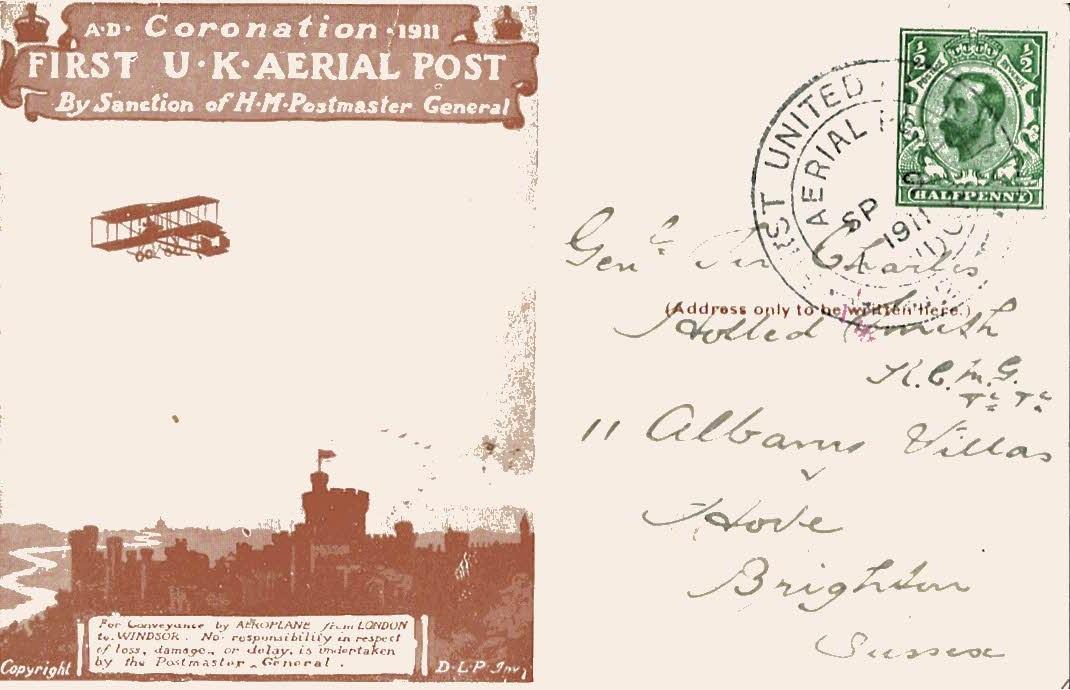 A·D· Coronation ·1911
FIRST U·K·AERIAL POST
By Sanction of H·M·Postmaster General
For Conveyance by AEROPLANE from LONDON
to WINDSOR. No responsibility in respect
of loss, damage, or delay, is undertaken
by the Postmaster General.
Copyright
D·L·P· Inv
½ ½
POSTAGE REVENUE
HALFPENNY
1ST UNITED
AERIAL POS
SP
1911
Genl Sir Charles
(Address only to be written here.)
Holled Smith
K.C.M.G.
Albany Villas
11
Hove
Brighton
Sussex